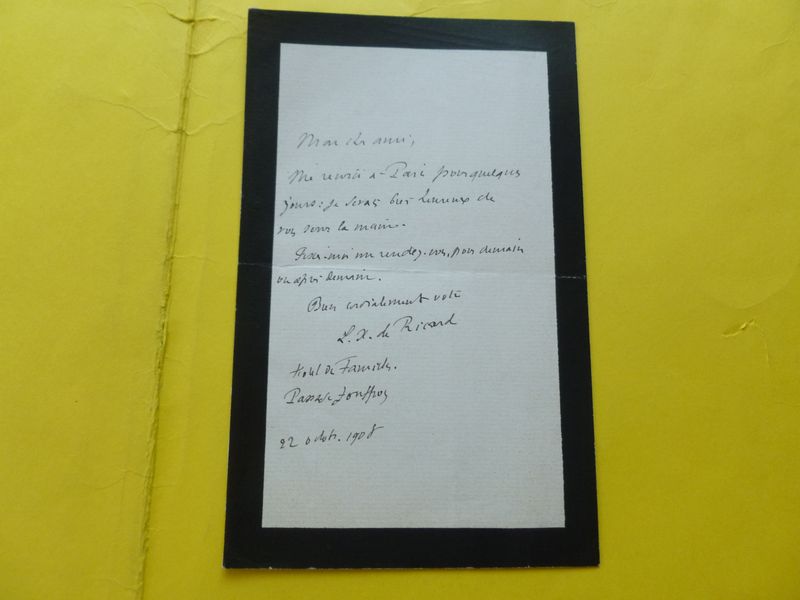 Mon cher ami,
Me revoici à Paris pour quelques
jours: je serais bien heureux de
vous serrer la main.
Fixez-moi un rendez-vous, pour demain
ou après demain.
Bien cordialement votre
L. X. de Ricard
Hotel de Familles.
Passage Jouffroy
22 octobr. 1908